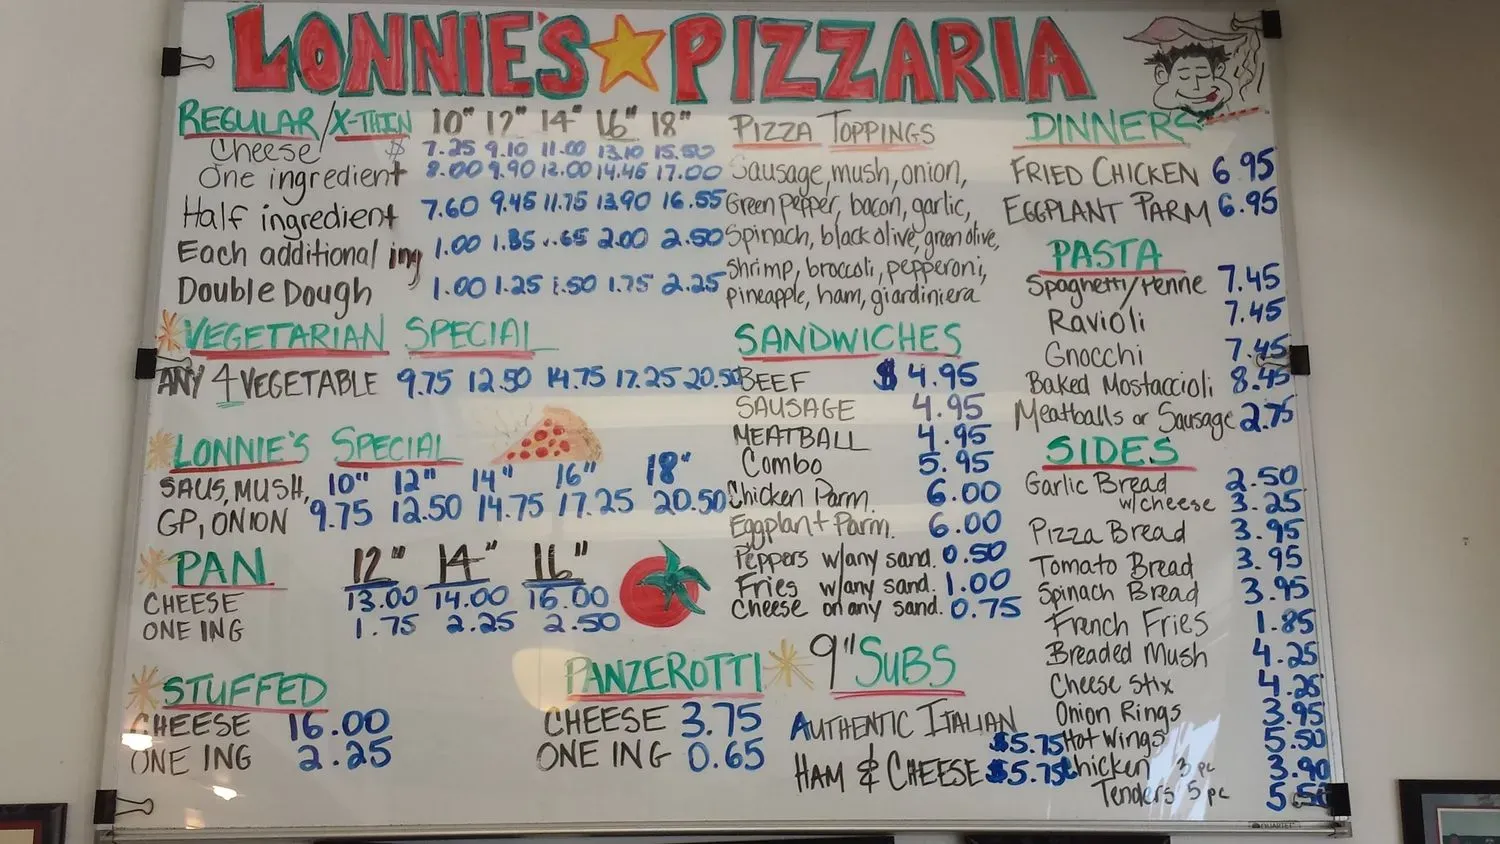 LONNIE'S PIZZARIA
REGULAR/X-THIN 10" 12" 14" 16" 18"
Cheese $ 7.25 9.10 11.00 13.10 15.50
One ingredient 8.00 9.90 12.00 14.45 17.00
Half ingredient 7.60 9.45 11.75 13.90 16.55
Each additional ing 1.00 1.35 1.65 2.00 2.50
Double Dough 1.00 1.25 1.50 1.75 2.25
VEGETARIAN SPECIAL
ANY 4 VEGETABLE 9.75 12.50 14.75 17.25 20.50
LONNIE'S SPECIAL
SAUS, MUSH, 10" 12" 14" 16" 18"
GP, ONION 9.75 12.50 14.75 17.25 20.50
PAN 12" 14" 16"
CHEESE 13.00 14.00 16.00
ONE ING 1.75 2.25 2.50
STUFFED
CHEESE 16.00
ONE ING 2.25
PANZEROTTI
CHEESE 3.75
ONE ING 0.65
PIZZA TOPPINGS
Sausage, mush, onion,
Green pepper, bacon, garlic,
Spinach, black olive, green olive,
Shrimp, broccoli, pepperoni,
pineapple, ham, giardiniera
SANDWICHES
BEEF $ 4.95
SAUSAGE 4.95
MEATBALL 4.95
Combo 5.95
Chicken Parm. 6.00
Eggplant Parm. 6.00
Peppers w/any sand. 0.50
Fries w/any sand. 1.00
Cheese on any sand. 0.75
9" SUBS
AUTHENTIC ITALIAN $5.75
HAM & CHEESE $5.75
DINNERS
FRIED CHICKEN 6.95
EGGPLANT PARM 6.95
PASTA
Spaghetti/Penne 7.45
Ravioli 7.45
Gnocchi 7.45
Baked Mostaccioli 8.45
Meatballs or Sausage 2.75
SIDES
Garlic Bread 2.50
w/cheese 3.25
Pizza Bread 3.95
Tomato Bread 3.95
Spinach Bread 3.95
French Fries 1.85
Breaded Mush 4.25
Cheese Stix 4.25
Onion Rings 3.95
Hot Wings 5.50
Chicken 3 pc 3.90
Tenders 5 pc 5.50
QUARTET